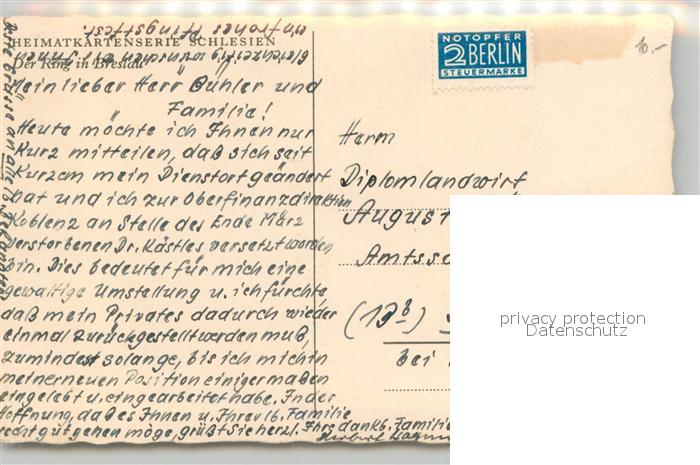 HEIMATKARTENSERIE SCHLESIEN
Der Ring in Breslau
NOTOPFER
2 BERLIN
STEUERMARKE
10.-
Mein lieber Herr Bühler und
Familie!
Heute möchte ich Ihnen nur
Kurz mitteilen, daß sich seit
Kurzem mein Dienstort geändert
hat und ich zur Oberfinanzdirektion
Koblenz an Stelle des Ende März
verstorbenen Dr. Kästles versetzt worden
bin. Dies bedeutet für mich eine
gewaltige Umstellung u. ich fürchte,
daß mein Privates dadurch wieder
einmal zurückgestellt werden muß,
zumindest solange, bis ich mich in
meiner neuen Position einigermaßen
eingelebt u. eingearbeitet habe. In der
Hoffnung, daß es Ihnen u. Ihrer lb. Familie
recht gut gehen möge, grüßt Sie herzl. Ihre dankb. Familie
Herbert
frohes Pfingstfest.
Herrn
Diplomlandwirt
August
Amtssc
(13b)
bei
privacy protection
Datenschutz